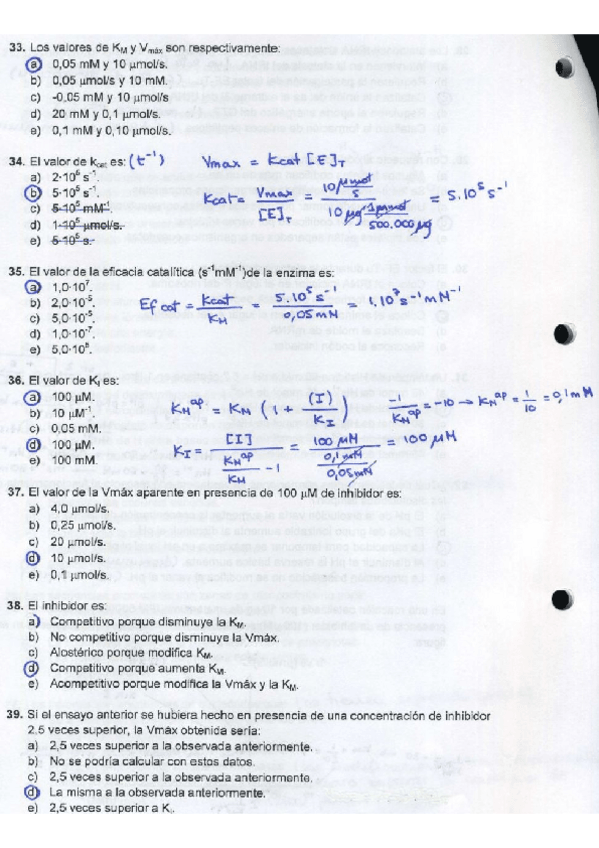 33. Los valores de KM y Vmáx son respectivamente:
a) 0,05 mM y 10 µmol/s.
b) 0,05 µmol/s y 10 mM.
c) -0,05 mM y 10 µmol/s
d) 20 mM y 0,1 µmol/s.
e) 0,1 mM y 0,10 µmol/s.
34. El valor de kcat es: (t⁻¹) Vmax = Kcat [E]T
a) 2·10⁵ s⁻¹.
b) 5·10⁵ s⁻¹.
c) 5·10⁵ mM⁻¹.
d) 1·10⁵ µmol/s.
e) 5·10⁵ s.
Kcat = Vmax / [E]T = 10 µmol/s / 10 µg · 1 µmol / 500.000 µg = 5.10⁵ s⁻¹
35. El valor de la eficacia catalítica (s⁻¹mM⁻¹)de la enzima es:
a) 1,0·10⁷.
b) 2,0·10⁻⁵.
c) 5,0·10⁻⁵.
d) 1,0·10⁻⁷.
e) 5,0·10⁸.
Efcat = Kcat / KM = 5.10⁵ s⁻¹ / 0,05 mM = 1.10⁷ s⁻¹ mM⁻¹
36. El valor de KI es:
a) 100 µM.
b) 10 µM⁻¹.
c) 0,05 mM.
d) 100 µM.
e) 100 mM.
KMᵃᵖ = KM (1 + (I) / KI) -1 / KMᵃᵖ = -10 → KMᵃᵖ = 1/10 = 0,1 mM
KI = [I] / KMᵃᵖ / KM - 1 = 100 µM / 0,1 mM / 0,05 mM = 100 µM
37. El valor de la Vmáx aparente en presencia de 100 µM de inhibidor es:
a) 4,0 µmol/s.
b) 0,25 µmol/s.
c) 20 µmol/s.
d) 10 µmol/s.
e) 0,1 µmol/s.
38. El inhibidor es:
a) Competitivo porque disminuye la KM.
b) No competitivo porque disminuye la Vmáx.
c) Alostérico porque modifica KM.
d) Competitivo porque aumenta KM.
e) Acompetitivo porque modifica la Vmáx y la KM.
39. Si el ensayo anterior se hubiera hecho en presencia de una concentración de inhibidor
2,5 veces superior, la Vmáx obtenida sería:
a) 2,5 veces superior a la observada anteriormente.
b) No se podría calcular con estos datos.
c) 2,5 veces superior a la observada anteriormente.
d) La misma a la observada anteriormente.
e) 2,5 veces superior a KI.